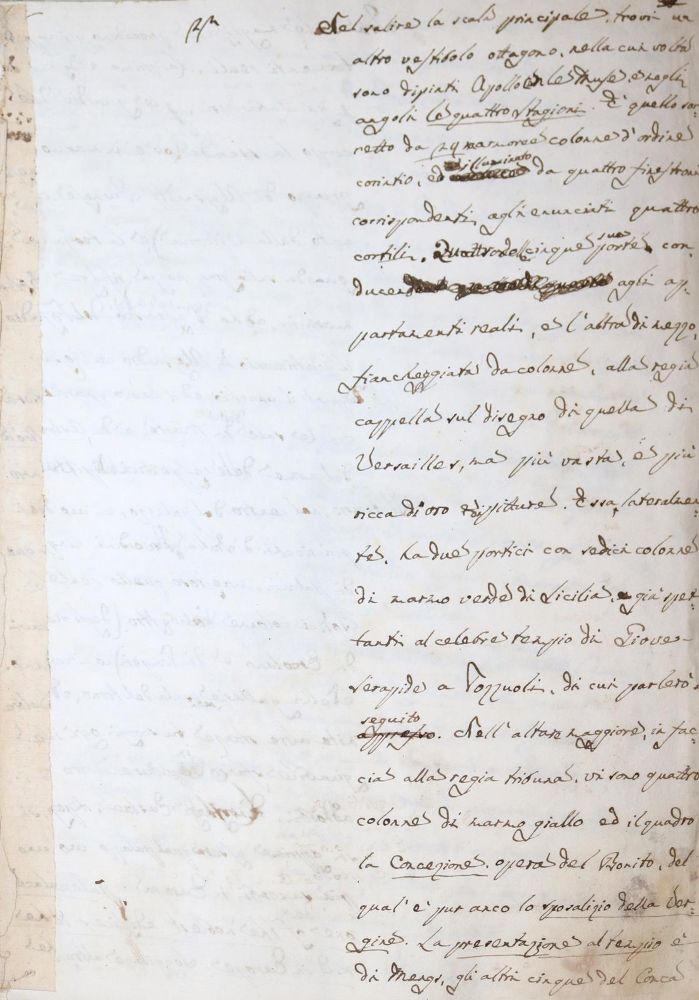 Nel salire la scala principale, trovi un
altro vestibolo ottagono, nella cui volta
sono dipinti Apollo e le Muse, e negli
angoli le quattro Stagioni. È quello sor-
retto da 24 marmoree colonne d'ordine
corintio, ed illuminato da quattro finestroni
corrispondenti agli enunciati quattro
cortili. Quattro delle cinque sue porte con-
ducono agli ap-
partamenti reali, e l'altra di mezzo,
fiancheggiata da colonne, alla regia
cappella sul disegno di quella di
Versailles, ma più vasta, e più
ricca di oro e di pitture. Essa, lateralmen-
te, ha due portici con sedici colonne
di marmo verde di Sicilia, già spet-
tanti al celebre tempio di Giove-
Serapide a Pozzuoli, di cui parlerò
seguito
appresso. Nell'altare maggiore, in fac-
cia alla regia tribuna, vi sono quattro
colonne di marmo giallo ed il quadro
la Concezione, opera del Bonito, del
qual'è pur anco lo Sposalizio della Ver-
gine. La presentazione al tempio è
di Mengs, gli altri cinque del Conca